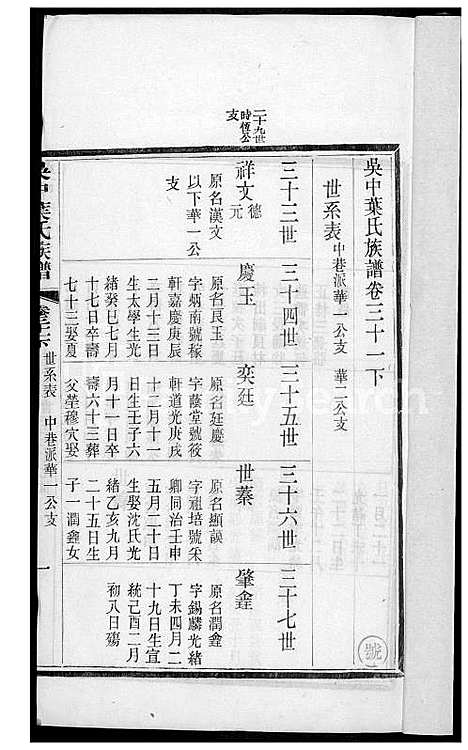 二十九世
時恆公
支
吳中葉氏族譜卷三十一下
世系表 中巷派華一公支 華二公支
三十三世 三十四世 三十五世 三十六世 三十七世
祥文 德元
原名漢文
以下華一公
支
慶玉
原名良玉
字炳南號稼
軒嘉慶庚辰
二月十三日
生太學生光
緒癸巳七月
十七日卒壽
七十三娶夏
奕廷
原名廷慶
字蔭堂號筱
軒道光庚戌
十二月十一
日生壬子六
月十一日卒
壽六十三葬
父塋穆穴娶
世蓁
原名顯謨
字祖培號寀
卿同治壬申
五月二十日
生娶沈氏光
緒乙亥九月
二十五日生
子一潤鑫女
肇鑫
原名潤鑫
字錫麟光緒
丁未四月二
十九日生宣
統己酉二月
初八日殤
吳中葉氏族譜
世系表 中巷派華一公支
一
號